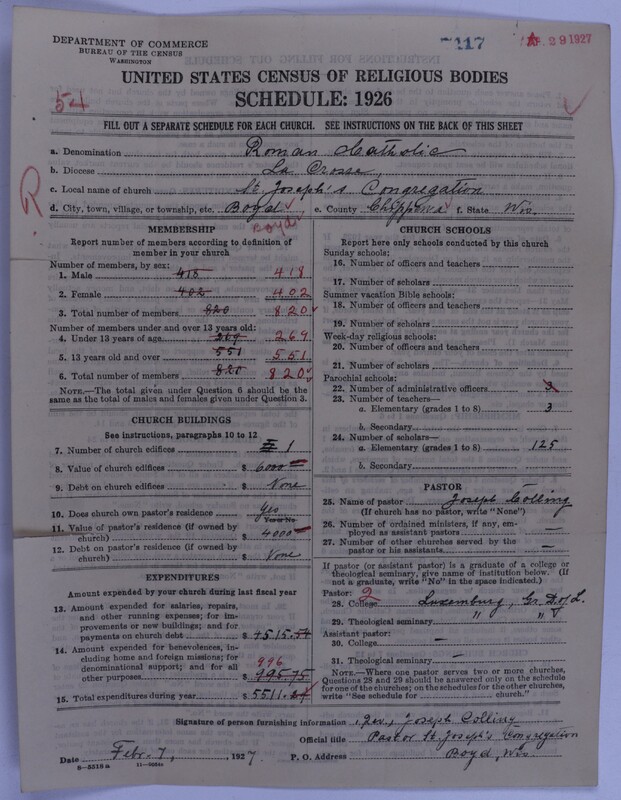 DEPARTMENT OF COMMERCE
BUREAU OF THE CENSUS
WASHINGTON
7117
29 1927
UNITED STATES CENSUS OF RELIGIOUS BODIES
SCHEDULE: 1926
54
FILL OUT A SEPARATE SCHEDULE FOR EACH CHURCH. SEE INSTRUCTIONS ON THE BACK OF THIS SHEET
a. Denomination Roman Catholic
b. Diocese La Crosse,
c. Local name of church St. Joseph's Congregation
d. City, town, village, or township, etc. Boyd e. County Chippewa f. State Wis.
R
Boyd
MEMBERSHIP
Report number of members according to definition of member in your church
Number of members, by sex:
1. Male 418 418
2. Female 402 402
3. Total number of members 820 820
Number of members under and over 13 years old:
4. Under 13 years of age 269 269
5. 13 years old and over 551 551
6. Total number of members 820 820
NOTE.—The total given under Question 6 should be the same as the total of males and females given under Question 3.
CHURCH BUILDINGS
See instructions, paragraphs 10 to 12
7. Number of church edifices 1
8. Value of church edifices $ 6000
9. Debt on church edifices $ None
10. Does church own pastor's residence Yes
Yes or No
11. Value of pastor's residence (if owned by church) $ 4000
12. Debt on pastor's residence (if owned by church) $ None
EXPENDITURES
Amount expended by your church during last fiscal year
13. Amount expended for salaries, repairs, and other running expenses; for improvements or new building; and for payments on church debt $ 4515.54
14. Amount expended for benevolences, including home and foreign missions; for denominational support; and for all other purposes 996 $ 995.75
15. Total expenditures during year $ 5511.29
CHURCH SCHOOLS
Report here only schools conducted by this church
Sunday schools:
16. Number of officers and teachers
17. Number of scholars
Summer vacation Bible schools:
18. Number of officers and teachers
19. Number of scholars
Week-day religious schools:
20. Number of officers and teachers
21. Number of scholars
Parochial schools:
22. Number of administrative officers 3
23. Number of teachers—
a. Elementary (grades 1 to 8) 3
b. Secondary
24. Number of scholars—
a. Elementary (grades 1 to 8) 125
b. Secondary
PASTOR
25. Name of pastor Joseph Colling
(If church has no pastor, write "None")
26. Number of ordained ministers, if any, employed as assistant pastors —
27. Number of other churches served by the pastor or his assistants —
If pastor (or assistant pastor) is a graduate of a college or theological seminary, give name of institution below. (If not a graduate, write "No" in the space indicated.)
Pastor: 2
28. College Luxemburg, Gr. D. of L.
29. Theological seminary " " "
Assistant pastor:
30. College —
31. Theological seminary —
NOTE.—Where one pastor serves two or more churches, Questions 28 and 29 should be answered only on the schedule for one of the churches; on the schedules for the other churches, write "See schedule for church."
Signature of person furnishing information Rev. Joseph Colling
Official title Pastor St. Joseph's Congregation
Date Febr. 7, , 1927 P. O. Address Boyd, Wis.
8—5518a